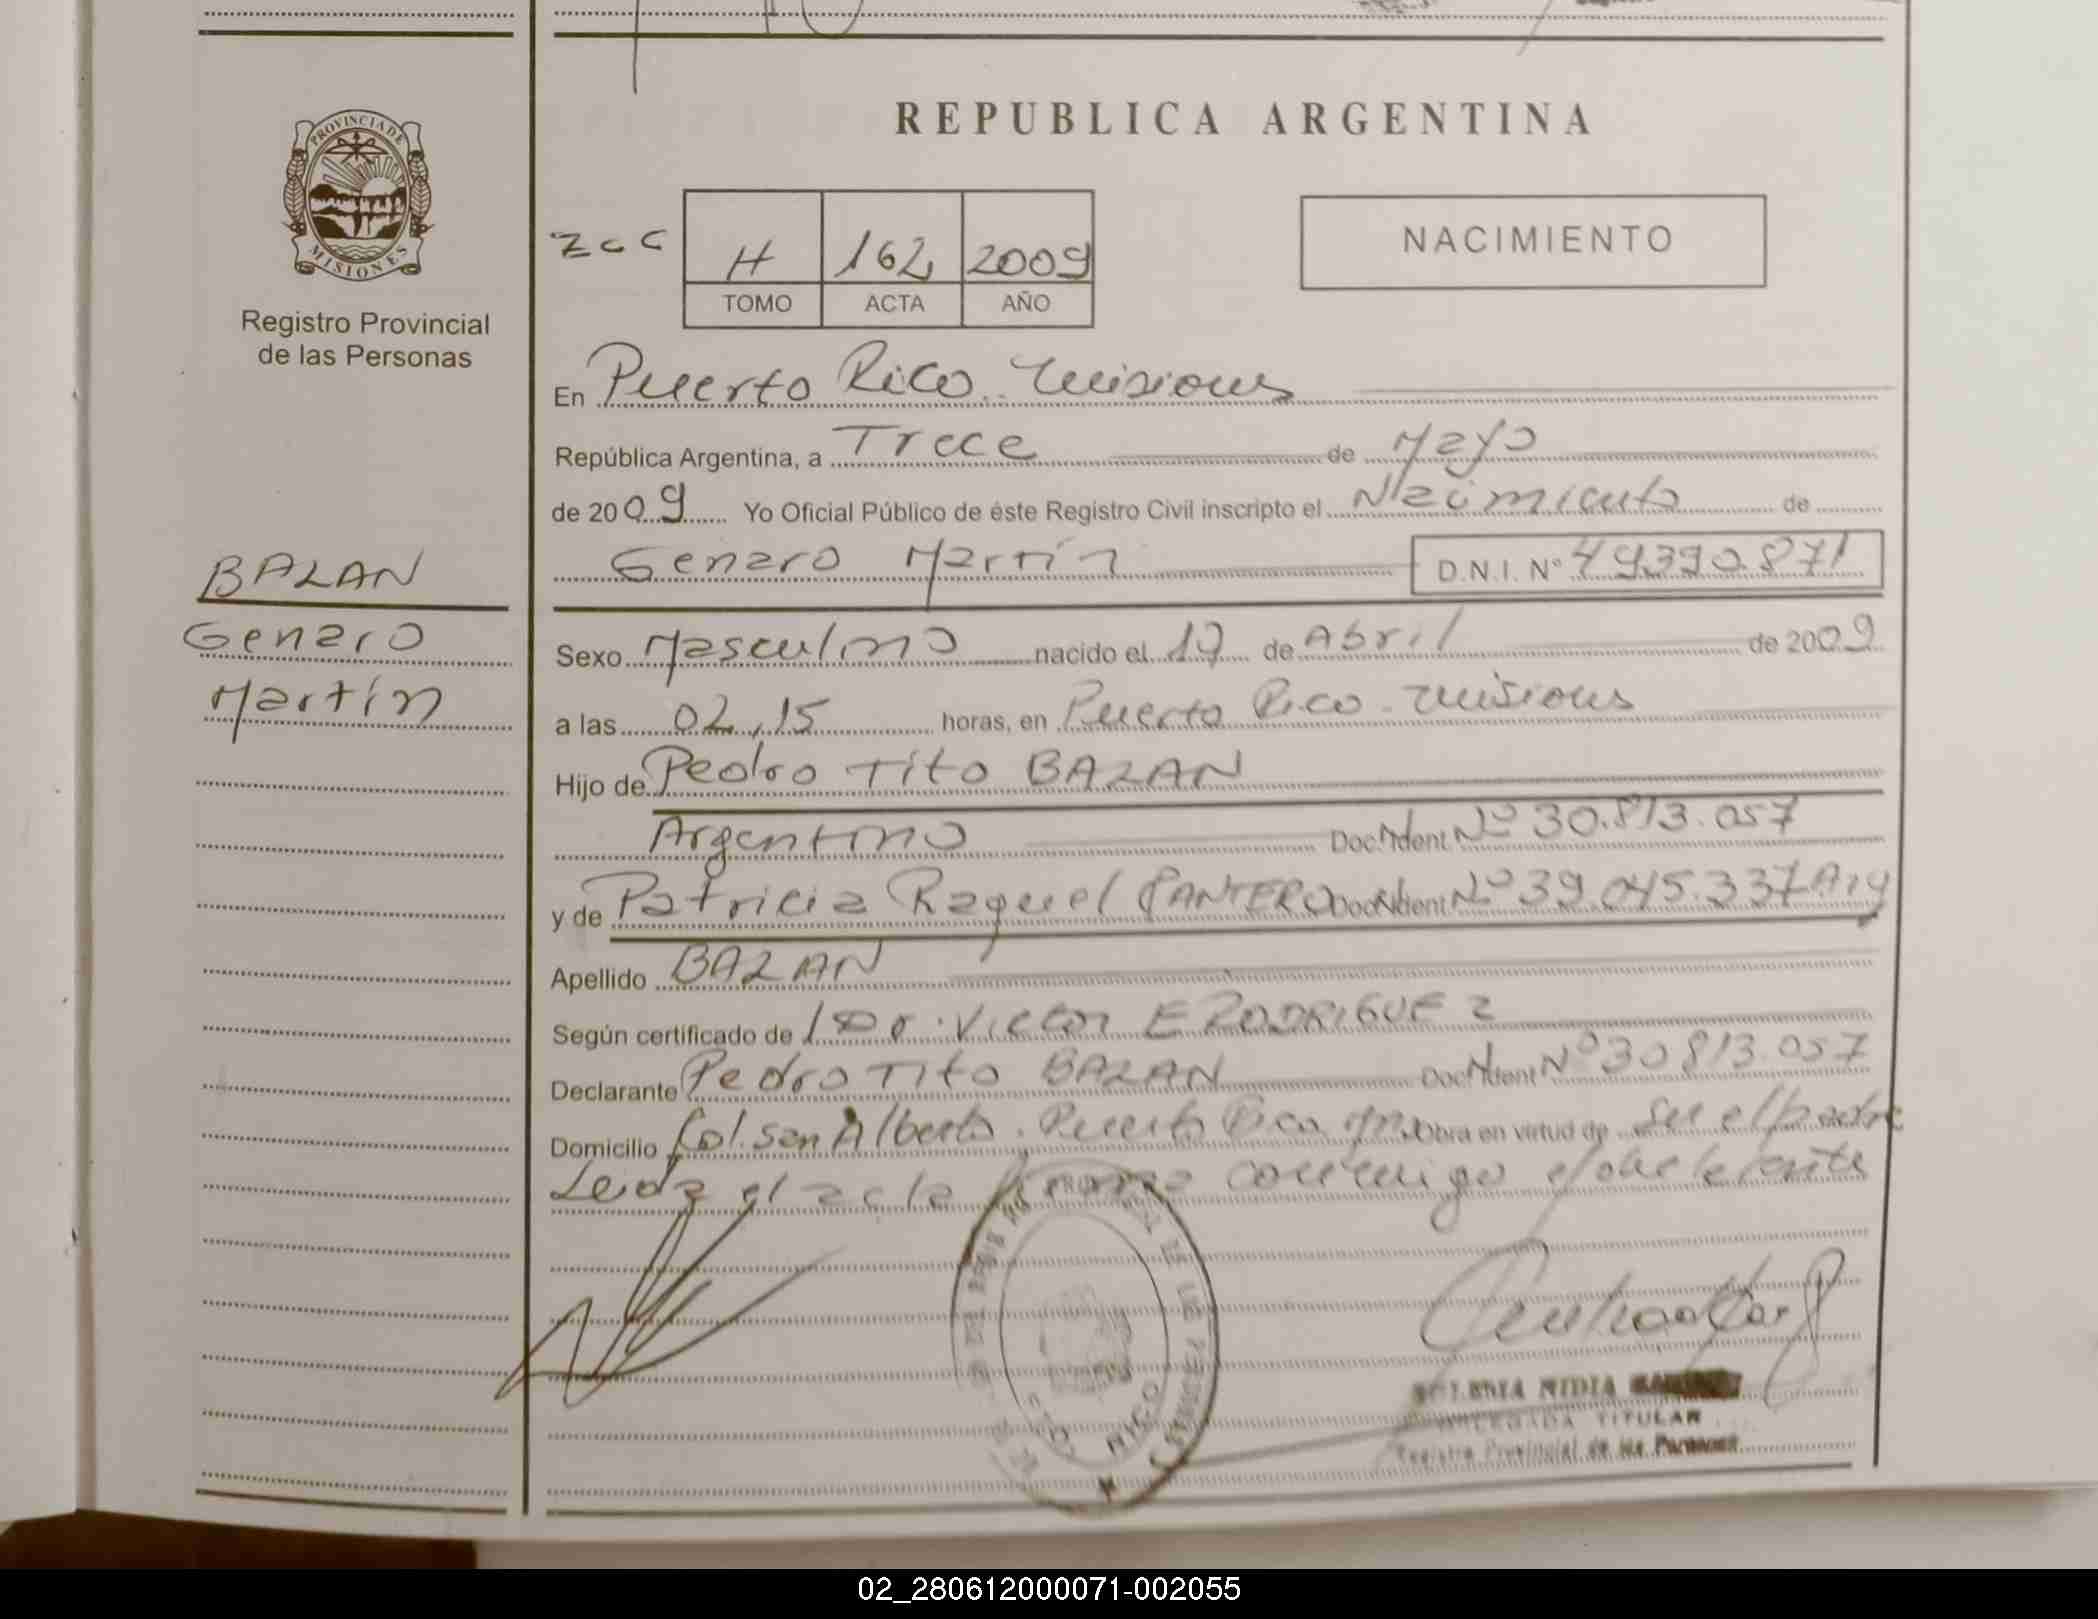 REPUBLICA ARGENTINA
PROVINCIA DE
MISIONES
Registro Provincial
de las Personas
zcc
H 162 2009
TOMO ACTA AÑO
NACIMIENTO
En Puerto Rico. Misiones
República Argentina, a Trece de Mayo
de 2009 Yo Oficial Público de éste Registro Civil inscripto el Nacimiento de
Genaro Martín D.N.I. Nº 49390.871
BAZAN
Genaro
Martín
Sexo Masculino nacido el 19 de Abril de 2009
a las 02,15 horas, en Puerto Rico. Misiones
Hijo de Pedro Tito BAZAN
Argentino Doc. Ident Nº 30.813.057
y de Patricia Raquel PANTERO Doc. Ident Nº 39.045.337 Arg
Apellido BAZAN
Según certificado de Dr. Victor E RODRIGUEZ
Declarante Pedro Tito BAZAN Doc. Ident Nº 30813.057
Domicilio Col. San Alberto. Puerto Rico Mnes. Obra en virtud de Ser el padre
Leida el acta Firma conmigo el declarante
RICO
NIDIA
DELEGADA TITULAR
Registro Provincial de las Personas
02_280612000071-002055